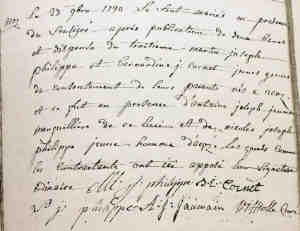 le 23 9bre 1790 Se sont mariés en presence
du Soussigné après publication de deux bancs
et dispense du troisieme maitre joseph
philippe et Bernardine j Cornet jeunes gens
du consentement de leurs parents
et ce fut en presence d'antoine joseph jaumain
de ce lieu et de nicolas joseph
philippe jeune homme les quels comme
les contractants ont ici apposé leur Signature
ordinaire M j philippe B: Cornet
N: j philippe A: j: jaumain